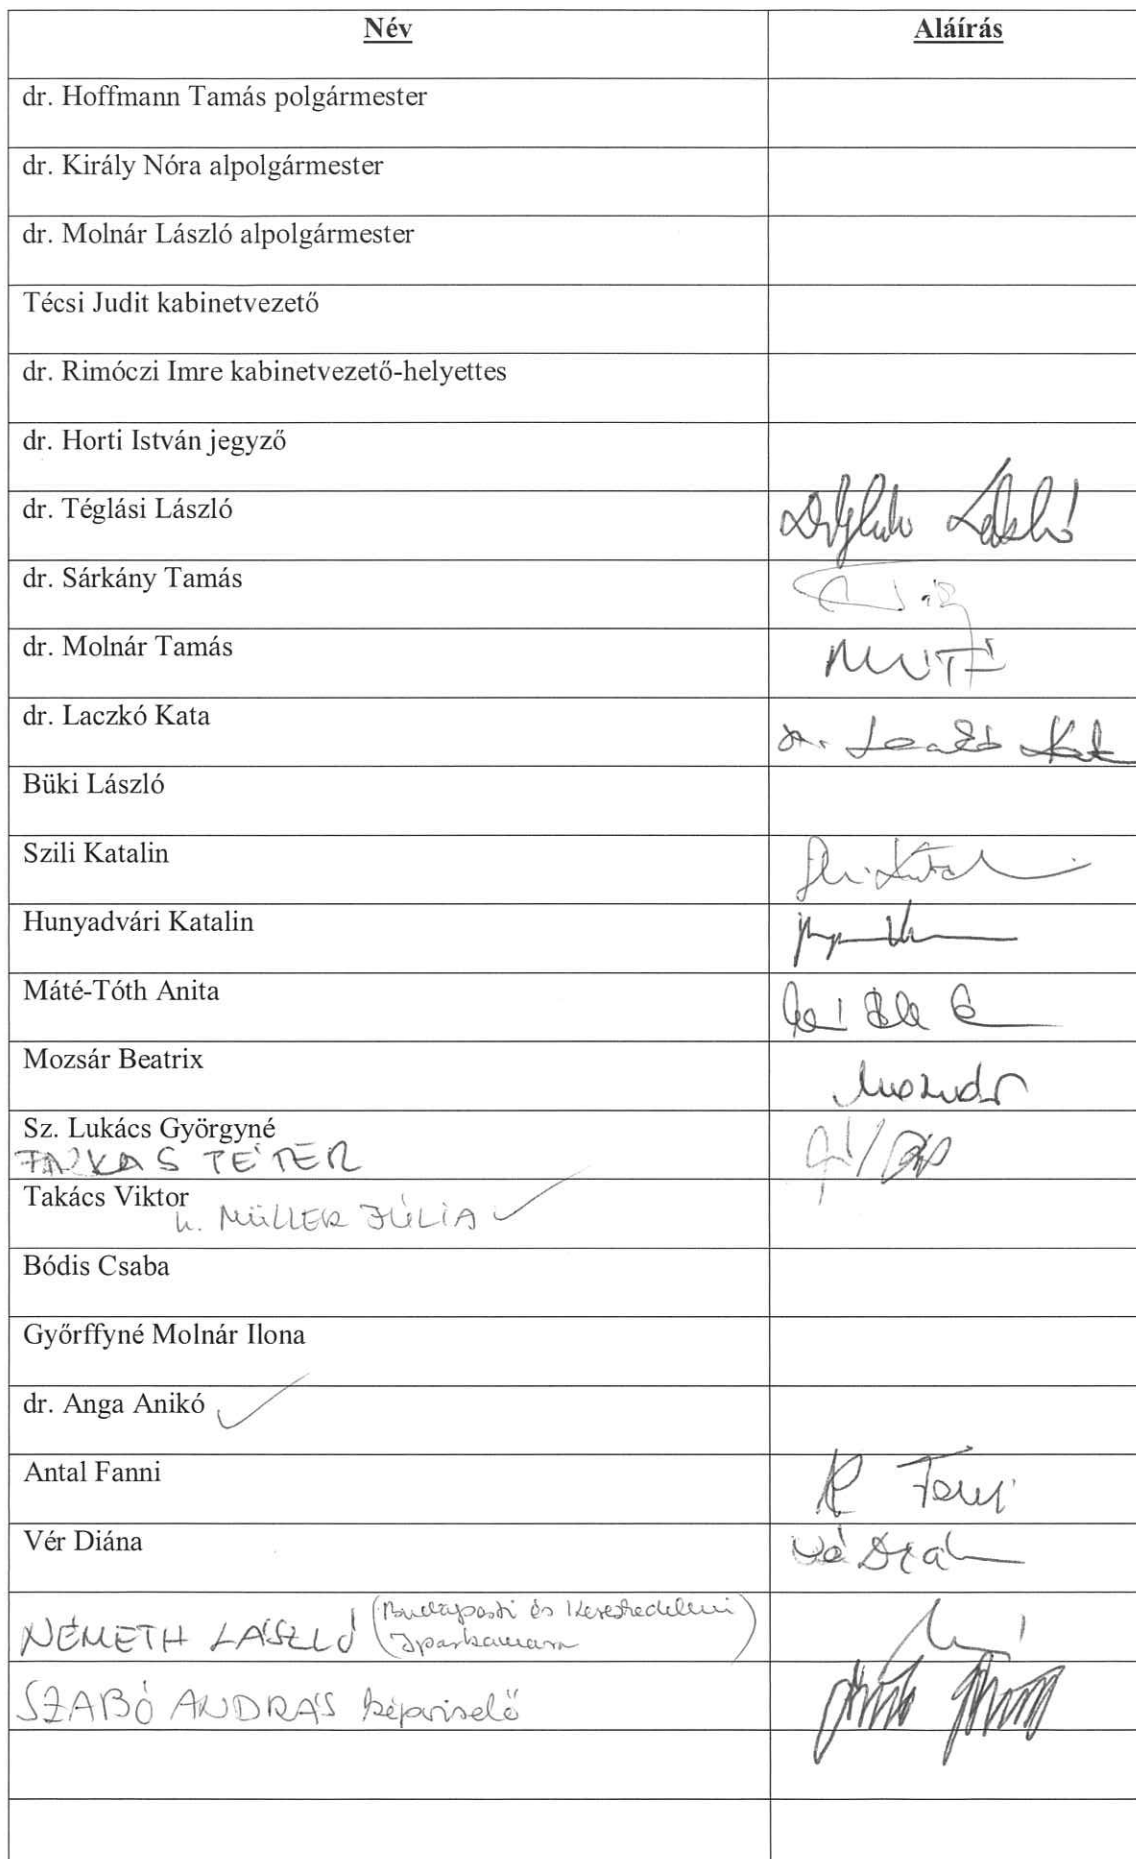 Név Aláírás
dr. Hoffmann Tamás polgármester
dr. Király Nóra alpolgármester
dr. Molnár László alpolgármester
Técsi Judit kabinetvezető
dr. Rimóczi Imre kabinetvezető-helyettes
dr. Horti István jegyző
dr. Téglási László László
dr. Sárkány Tamás
dr. Molnár Tamás
dr. Laczkó Kata dr. Laczkó Kata
Büki László
Szili Katalin
Hunyadvári Katalin
Máté-Tóth Anita
Mozsár Beatrix
Sz. Lukács Györgyné
FARKAS PÉTER
Takács Viktor
h. MÜLLER JÚLIA ✓
Bódis Csaba
Győrffyné Molnár Ilona
dr. Anga Anikó ✓
Antal Fanni Fanni
Vér Diána
NÉMETH LÁSZLÓ (Budapesti és Kereskedelmi
Iparkamara)
SZABÓ ANDRÁS képviselő